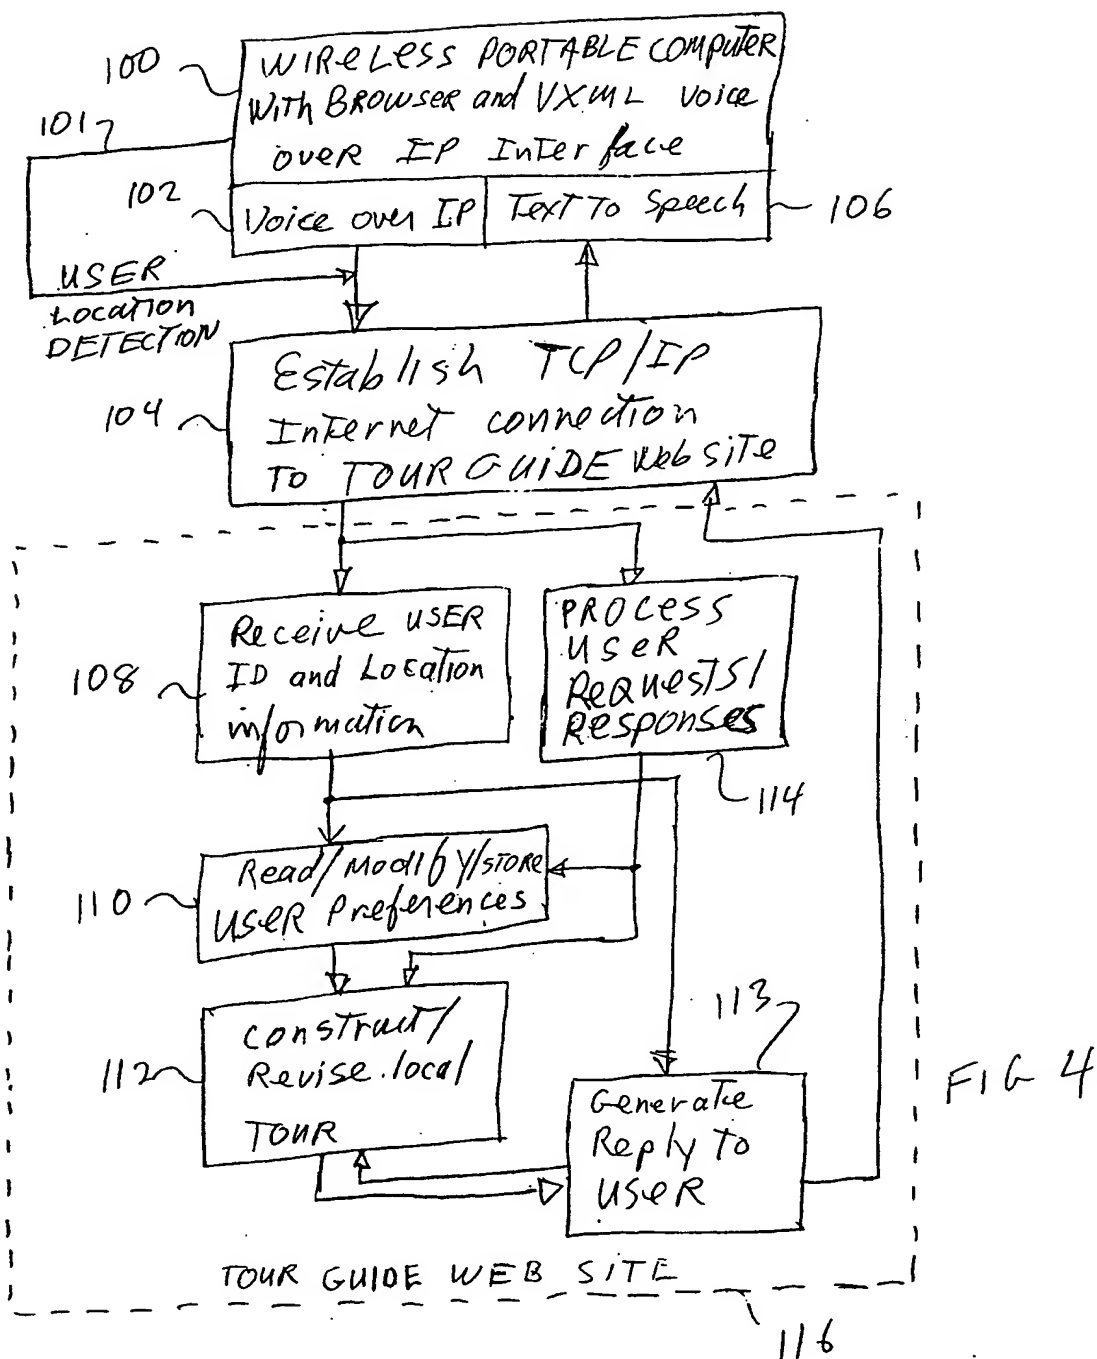 100
WIRELESS PORTABLE COMPUTER
With BROWSER and VXML Voice
over IP Interface
101
102
Voice over IP
Text To Speech
106
USER
Location
DETECTION
104
Establish TCP/IP
Internet connection
To TOUR GUIDE Web site
108
Receive USER
ID and Location
information
PROCESS
USER
Requests/
Responses
114
110
Read/Modify/STORE
USER Preferences
112
Construct/
Revise local
TOUR
113
Generate
Reply To
USER
FIG 4
TOUR GUIDE WEB SITE
116